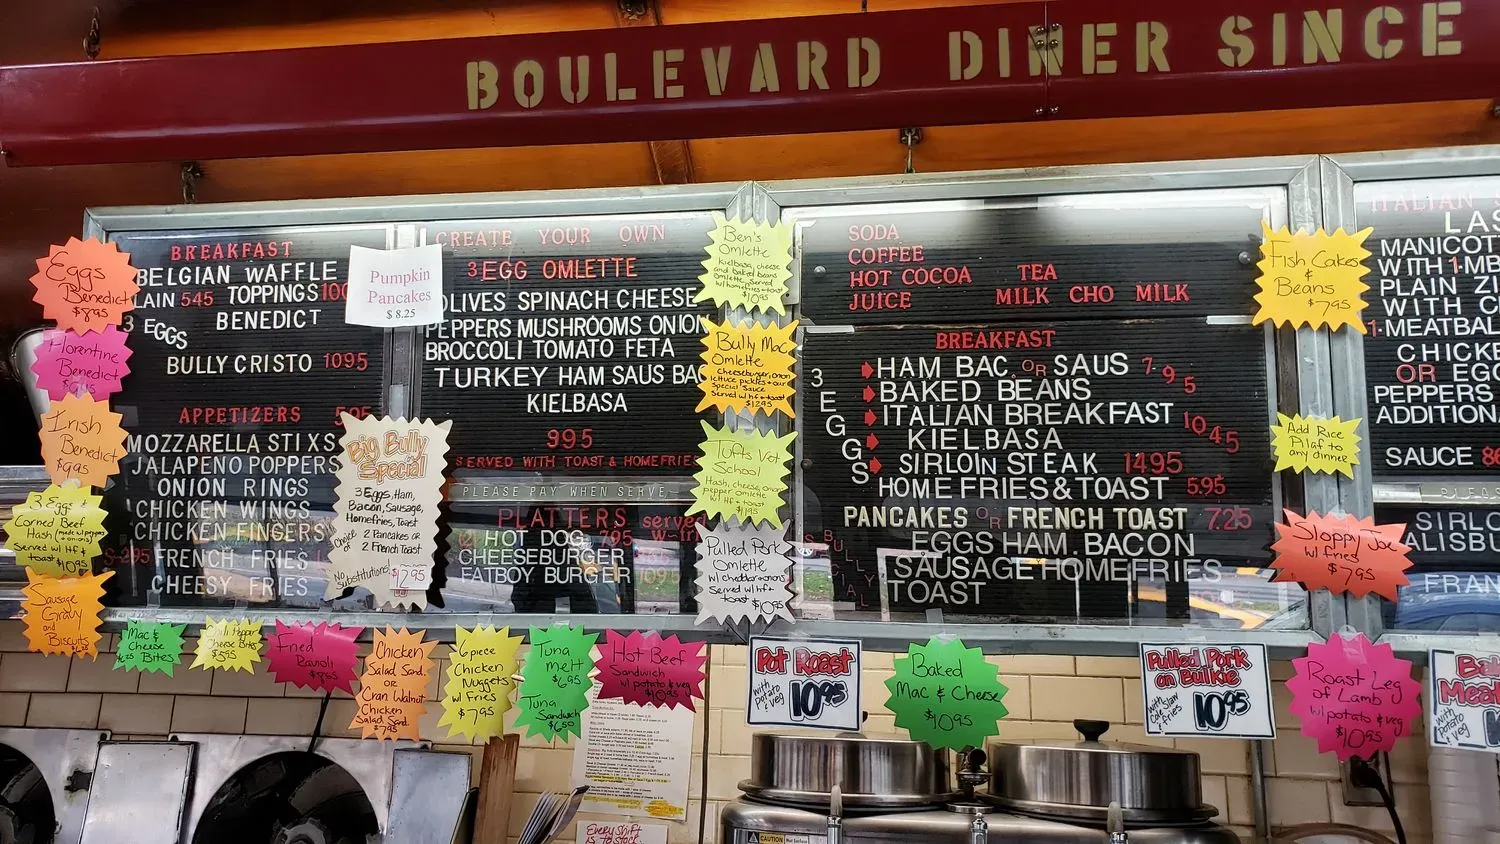 BOULEVARD DINER SINCE
BREAKFAST
BELGIAN WAFFLE
LAIN 545 TOPPINGS 100
3 EGGS BENEDICT
BULLY CRISTO 1095
APPETIZERS 595
MOZZARELLA STIXS
JALAPENO POPPERS
ONION RINGS
CHICKEN WINGS
CHICKEN FINGERS
FRENCH FRIES
CHEESY FRIES
Eggs
Benedict
$8.95
Florentine
Benedict
Irish
Benedict
$9.95
3 Eggs &
Corned Beef
Hash
Served w/ Hf &
toast $10.95
Sausage
Gravy
and
Biscuits
Pumpkin
Pancakes
$ 8.25
Big Bully
Special
3 Eggs, Ham,
Bacon, Sausage,
Homefries, Toast
Choice of
2 Pancakes or
2 French Toast
No
substitutions
$12.95
CREATE YOUR OWN
3 EGG OMLETTE
OLIVES SPINACH CHEESE
PEPPERS MUSHROOMS ONION
BROCCOLI TOMATO FETA
TURKEY HAM SAUS BAC
KIELBASA
995
SERVED WITH TOAST & HOMEFRIES
PLEASE PAY WHEN SERVE
PLATTERS served
HOT DOG 795 w-fri
CHEESEBURGER
FATBOY BURGER 1095
Ben's
Omlette
kielbasa, cheese
and baked beans
omlette served
w/ homefries + toast
$10.95
Bully Mac
Omlette
cheeseburger, onion
lettuce pickles + our
Special Sauce
Served w/ hf + toast
$12.95
Tufts Vet
School
Hash, cheese, onion
pepper omlette
w/ Hf + toast
$11.95
Pulled Pork
Omlette
w/ cheddar + onions
Served w/ hf +
toast $10.95
SODA
COFFEE
HOT COCOA TEA
JUICE MILK CHO MILK
BREAKFAST
3 EGGS
HAM BAC OR SAUS 7-95
BAKED BEANS
ITALIAN BREAKFAST 1045
KIELBASA
SIRLOIN STEAK 1495
HOME FRIES & TOAST 5.95
PANCAKES OR FRENCH TOAST 7.25
EGGS HAM BACON
SAUSAGE HOMEFRIES
TOAST
Fish Cakes
&
Beans
$7.95
Add Rice
Pilaf to
any dinner
Sloppy Joe
w/ fries
$7.95
ITALIAN S
LAS
MANICOT
WITH 1-MB
PLAIN ZI
WITH C
1-MEATBAL
CHICKE
OR EGG
PEPPERS
ADDITION
SAUCE
SIRLO
ALISBU
FRAN
Mac &
Cheese
Bites
Chili Pepper
Cheese Bites
$5.95
Fried
Ravioli
$8.95
Chicken
Salad Sand.
or
Cran Walnut
Chicken
Salad Sand.
$7.95
6 piece
Chicken
Nuggets
w/ Fries
$7.95
Tuna
melt
$6.95
Tuna
Sandwich
$6.50
Hot Beef
Sandwich
w/ potato & veg
$10.95
Pot Roast
with
Potato
& veg
10.95
Baked
Mac & Cheese
$10.95
Pulled Pork
on Bulkie
with slaw
fries
10.95
Roast Leg
of Lamb
w/ potato & veg
$10.95
Every shift
is to stock
CAUTION Hot Surface